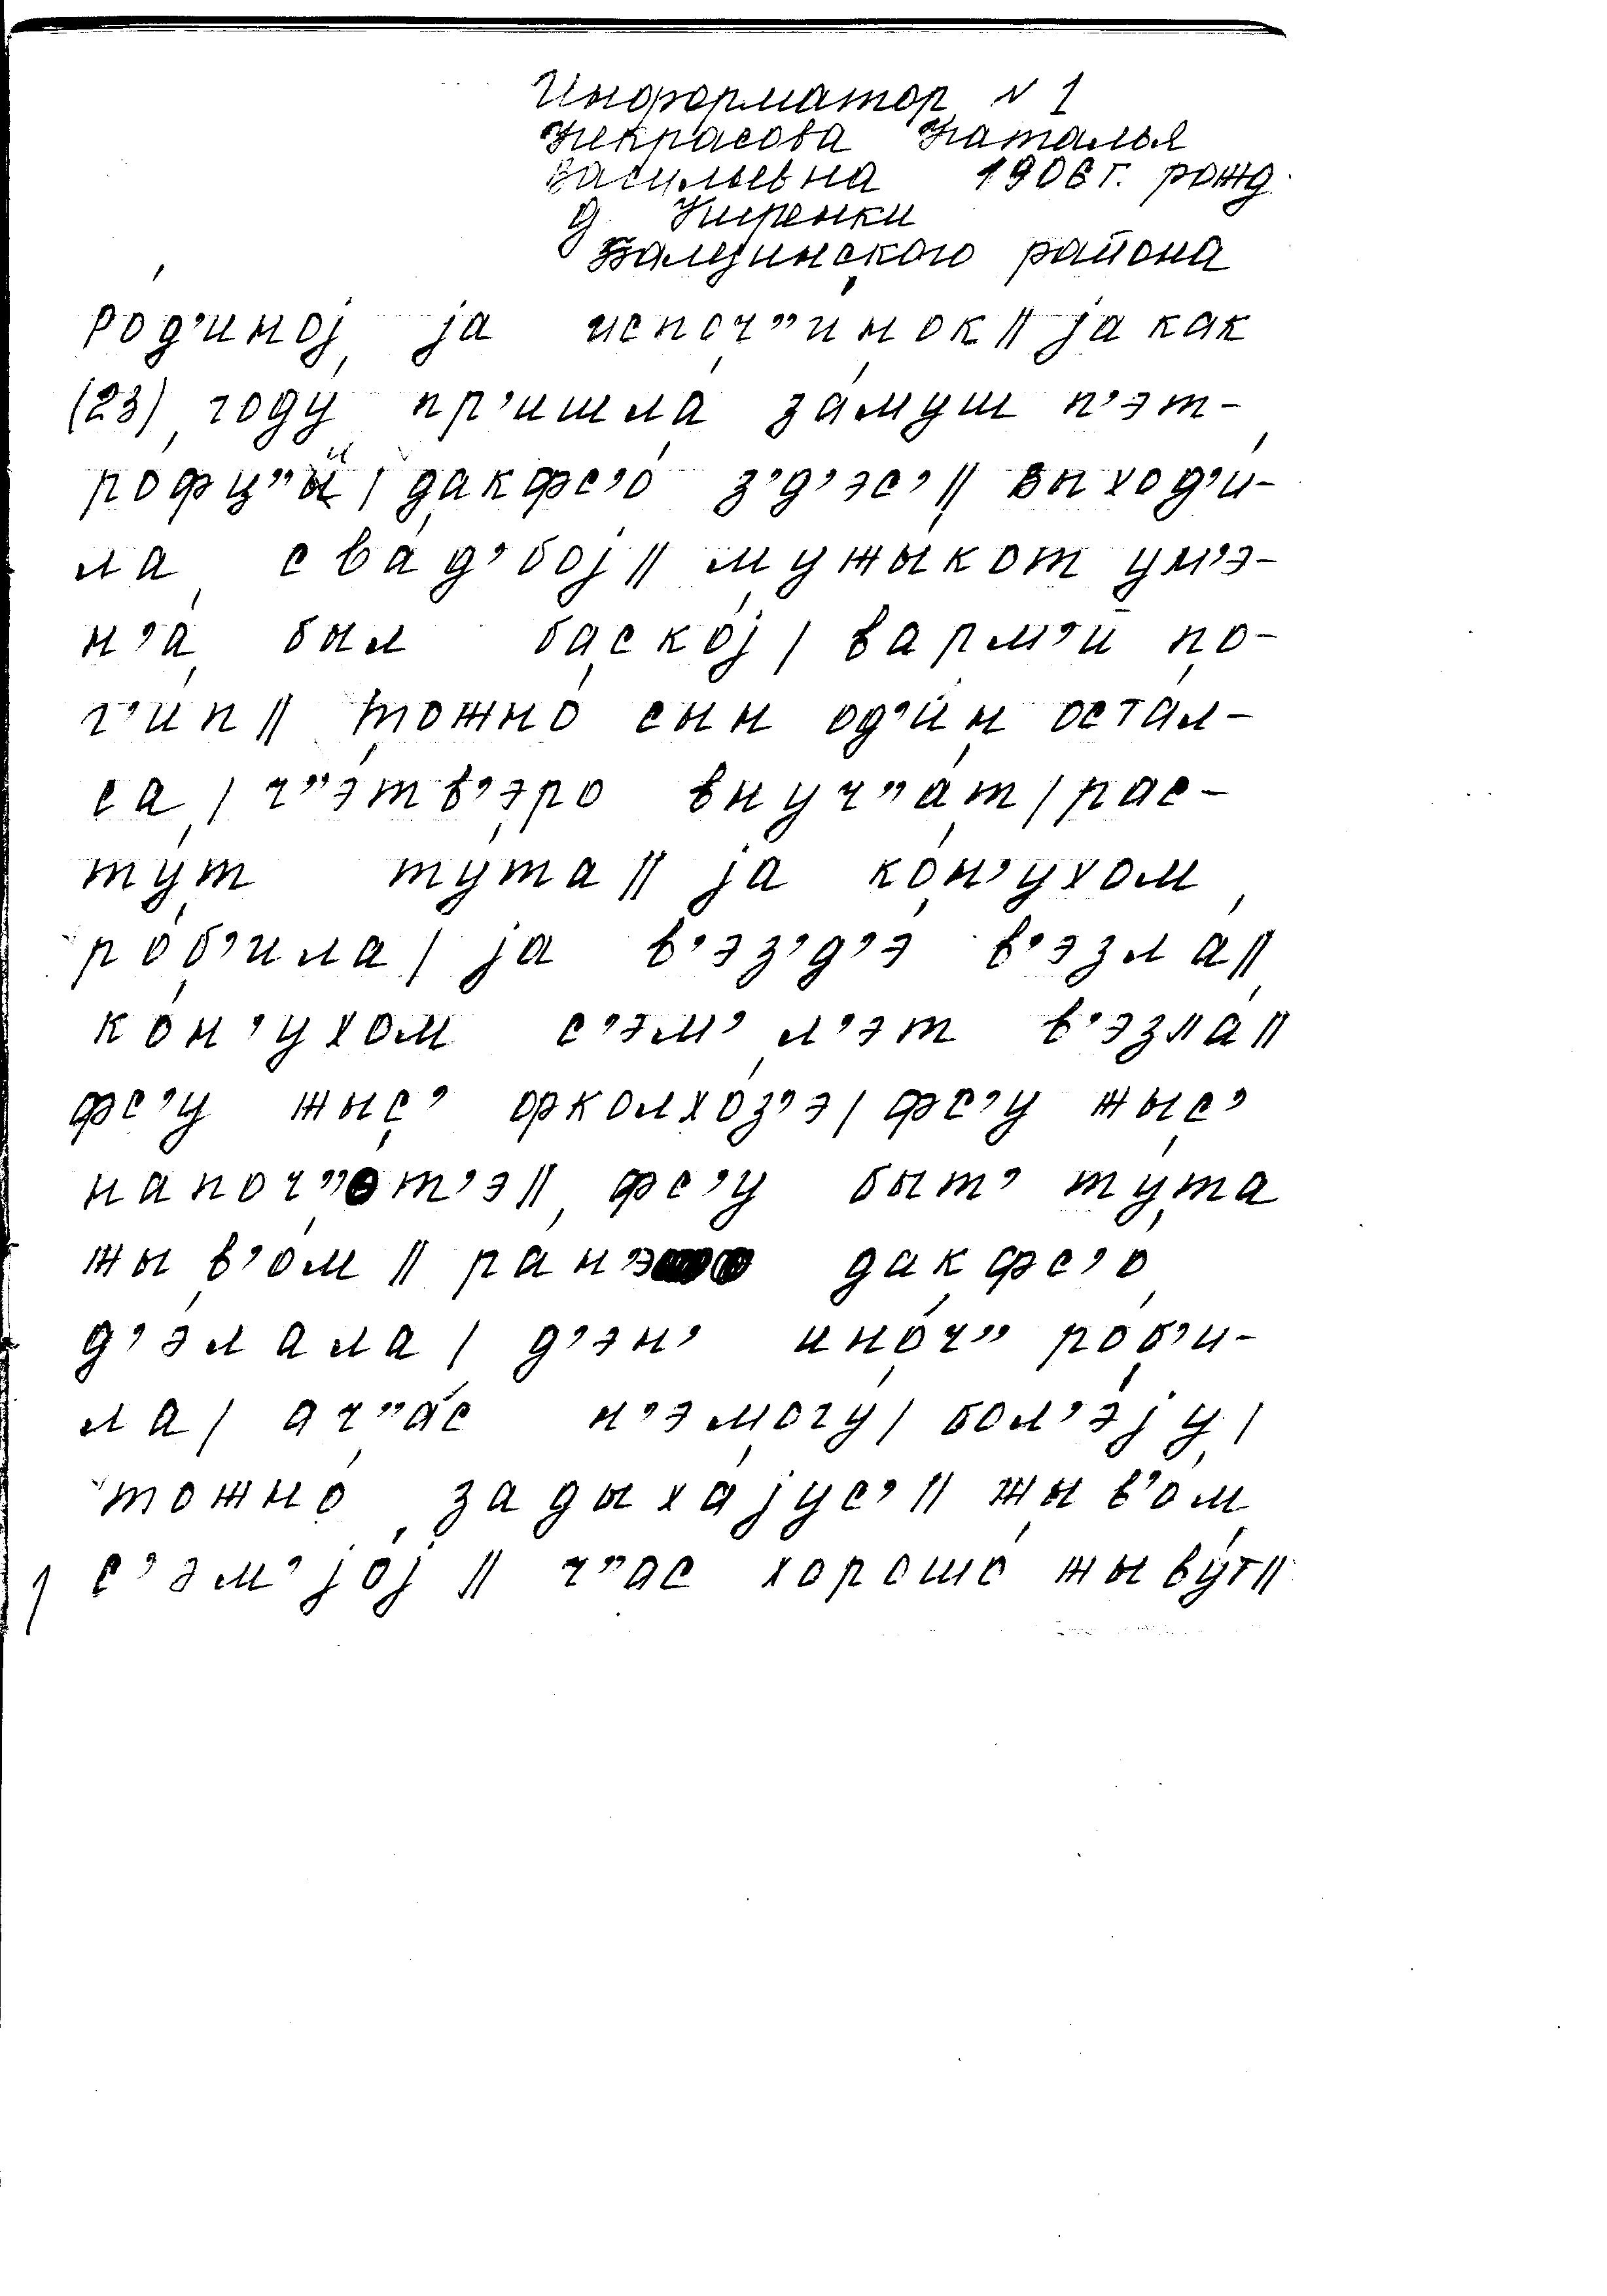 Информатор N 1
Некрасова Наталья
Васильевна 1906 г. рожд.
д. Киренки
Балезинского района
ро́д’иној ја испоч”и́нок || ја как
(23) году́ пр’ишла́ за́муш п’эт-
ро́фц”ы | дакфс’о́ з’д’эс’ || выход’и́-
ла сва́д’бој || мужы́кот ум’э-
н’а́ был баско́ј |варм’и́и по-
г’и́п || тожно́ сын од’и́н оста́л-
са | ч”э́тв’эро внуч”а́т | рас-
ту́т ту́та || ја ко́н’ухом
ро́б’ила | ја в’эз’д’э́ в’эзла́ ||
ко́н’ухом с’эм’ л’эт в’эзла́ ||
фс’у жыс’ фколхо́з’э | фс’у жыс’
напоч”о́т’э || фс’у быт’ ту́та
жыв’о́м || ра́н’э дакфс’о́
д’э́лала | д’эн’ ино́ч” ро́б’и-
ла | ач”а́с н’эмогу́ | бол’э́ју |
тожно́ задыха́јус’ || жыв’о́м
с’эм’јо́ј || ч”ас хорошо́ жыву́т ||